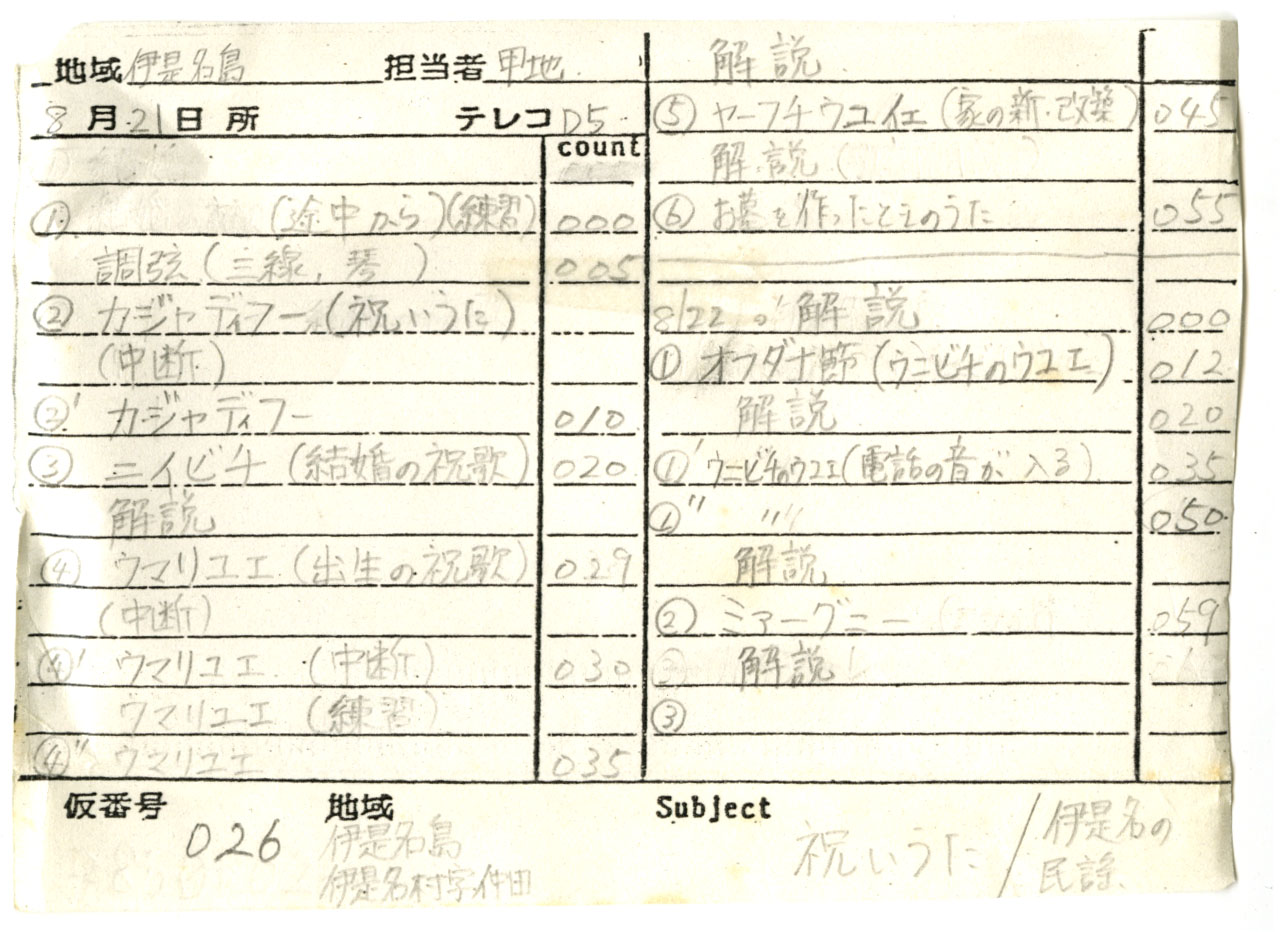 地域 伊是名島 担当者 甲地
8月21日 所 テレコ D5
count
① (途中から)(練習) 000
調弦(三線, 琴) 005
② カジャディフー (祝いうた)
(中断)
②' カジャディフー 010
③ ニイビチ (結婚の祝歌) 020
解説
④ ウマリユエ (出生の祝歌) 029
(中断)
④' ウマリユエ (中断) 030
ウマリユエ (練習)
④'' ウマリユエ 035
解説
⑤ ヤーフチウユイエ (家の新・改築) 045
解説
⑥ お墓を作ったときのうた 055
8/22 解説 000
① オフダナ節 (ウニビチのウユエ) 012
解説 020
①' ウニビチのウユエ (電話の音が入る) 035
①'' 〃 050
解説
② ミァーグニー 059
解説
③
仮番号 026
地域
伊是名島
伊是名村字仲田
Subject
祝いうた / 伊是名の民謡